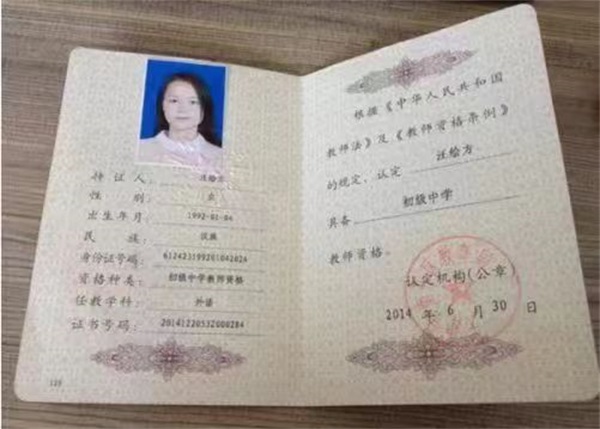 持证人：汪绘方
性别：女
出生年月：1992-01-04
民族：汉族
身份证号码：612423199201042824
资格种类：初级中学教师资格
任教学科：外语
证书号码：20141220532000284
110
根据《中华人民共和国
教师法》及《教师资格条例》
的规定，认定 汪绘方
具备 初级中学
教师资格。
认定机构(公章)
2014 年 6 月 30 日